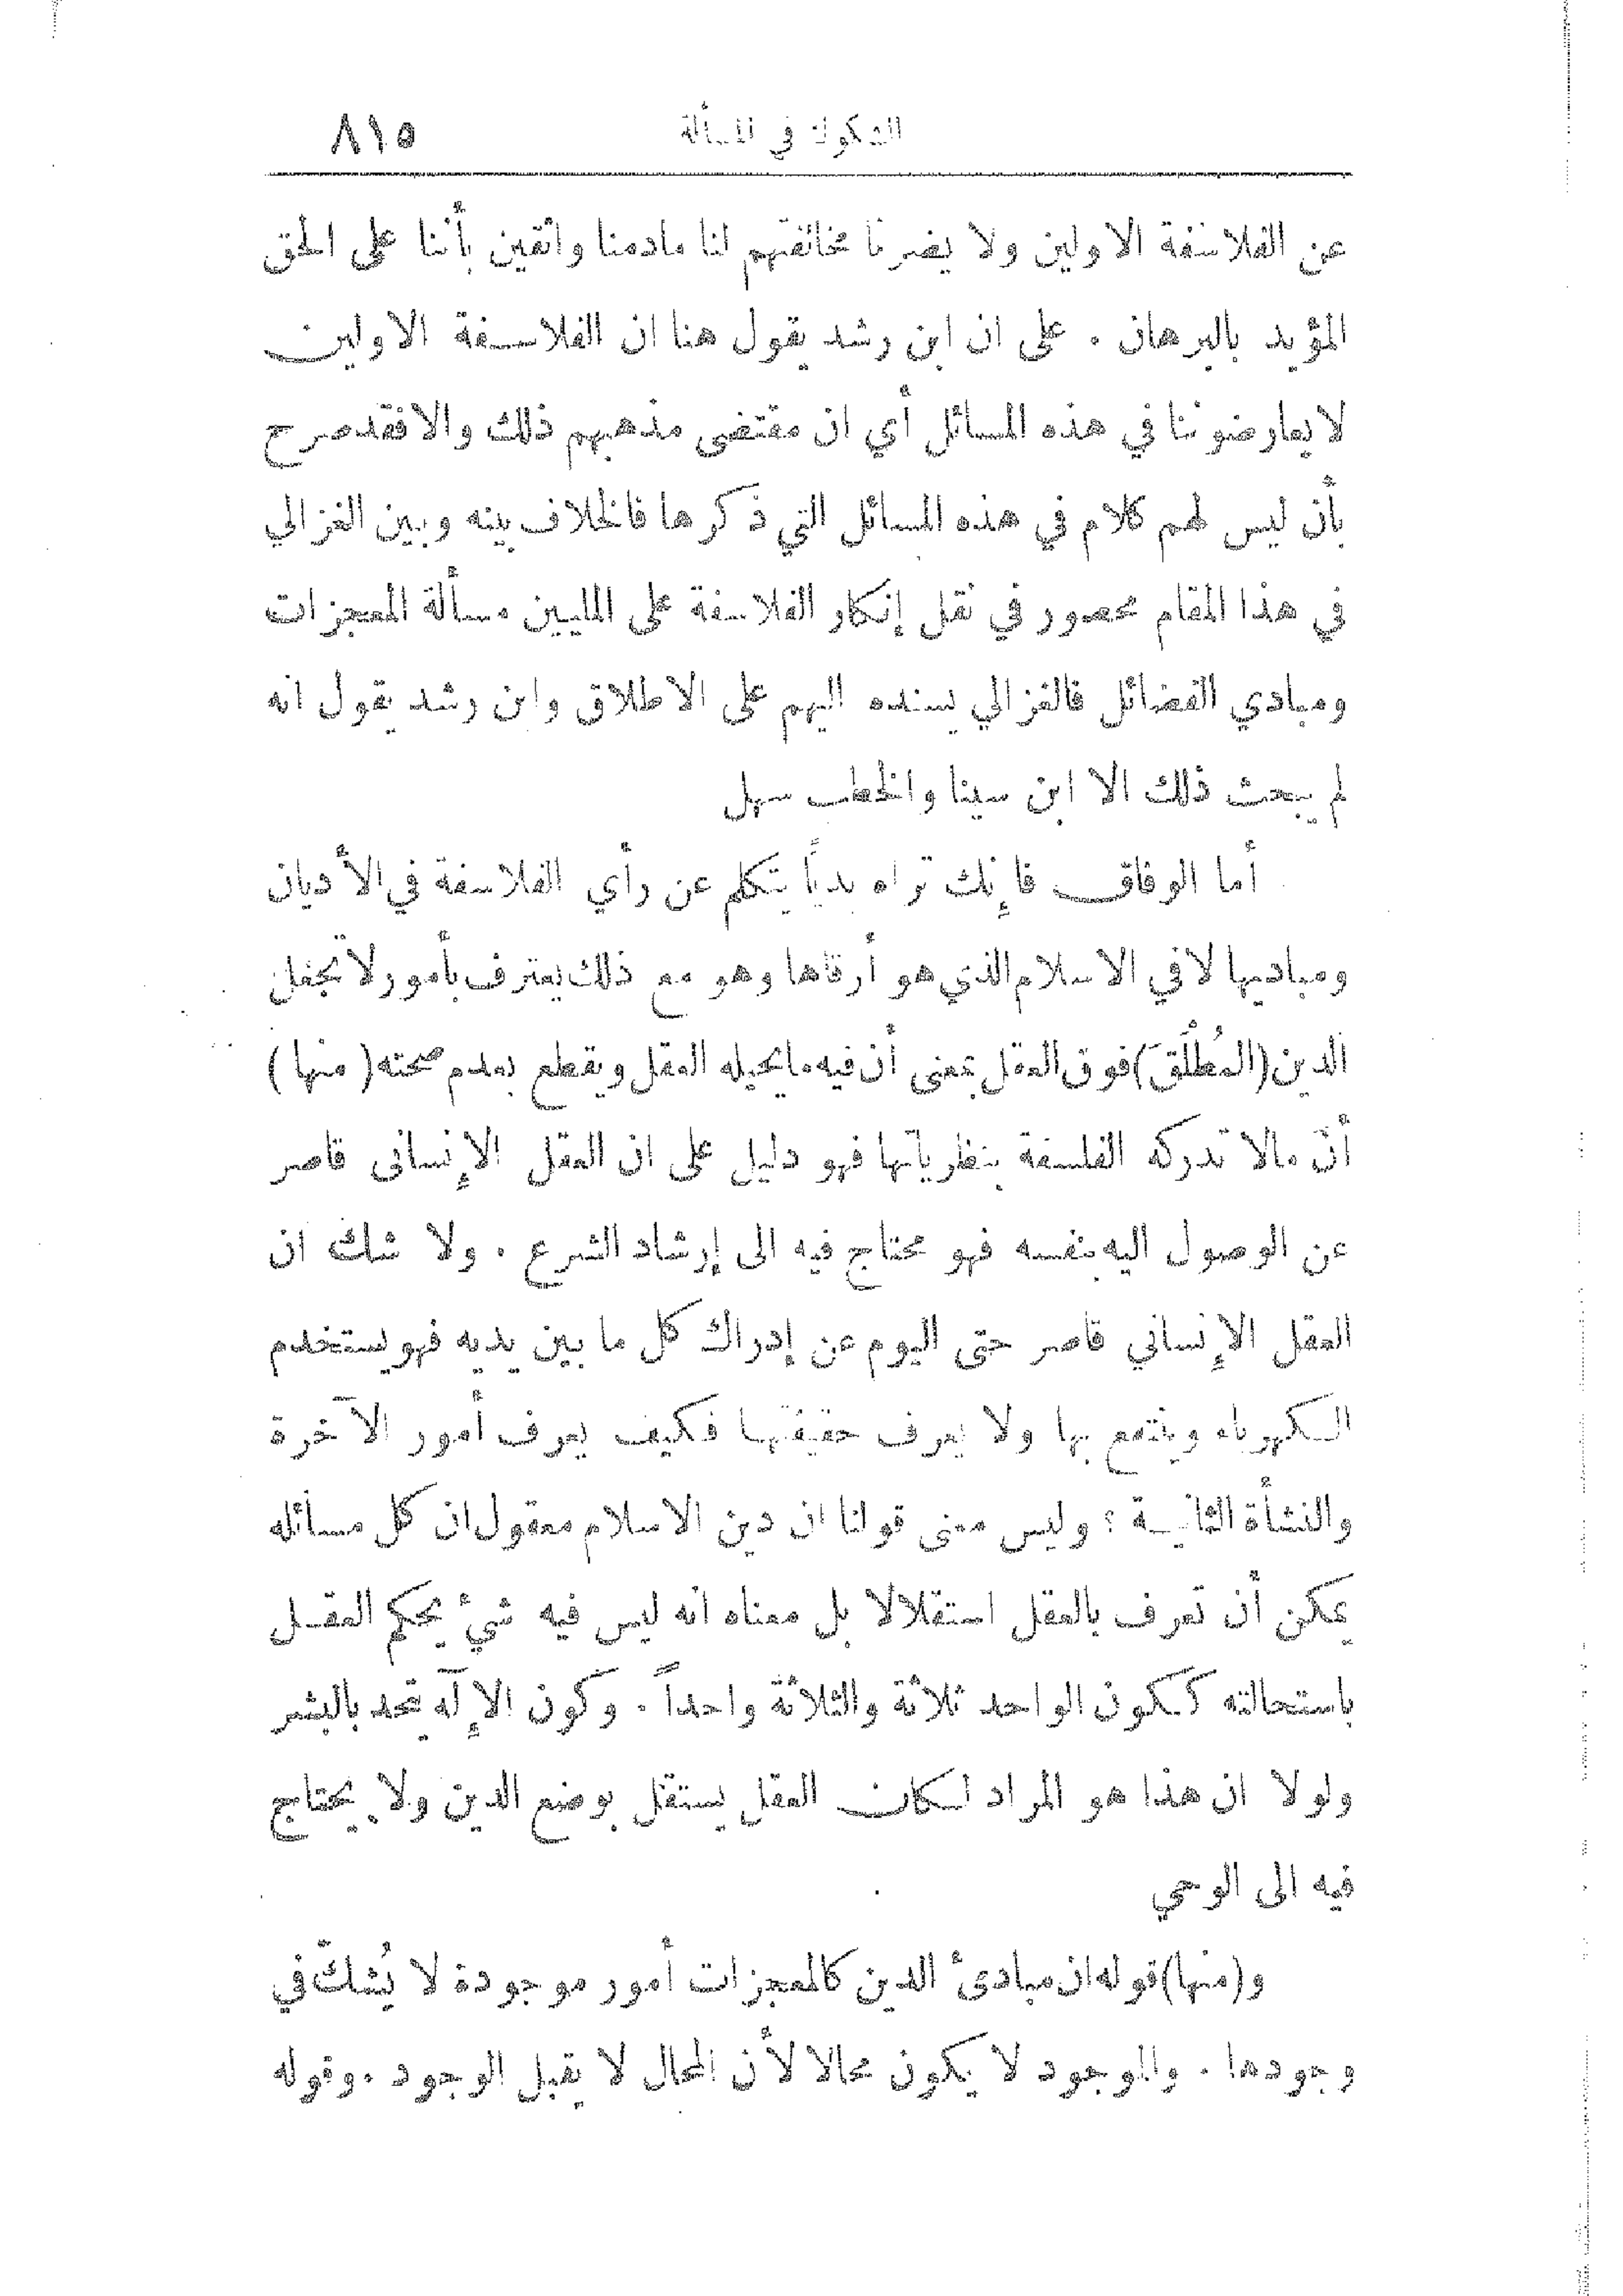 الشكوك في المسألة ٨١٥
عن الفلاسفة الاولين ولا يضرنا مخالفتهم لنا مادمنا واثقين بأننا على الحق
المؤيد بالبرهان . على ان ابن رشد يقول هنا ان الفلاسفة الاولين
لا يعارضوننا في هذه المسائل أي ان مقتضى مذهبهم ذلك والا فقد صرح
بأن ليس لهم كلام في هذه المسائل التي ذكرها فالخلاف بينه وبين الغزالي
في هذا المقام محصور في نقل إنكار الفلاسفة على المليين مسألة المعجزات
ومبادي الفضائل فالغزالي يسنده اليهم على الاطلاق وابن رشد يقول انه
لم يبحث ذلك الا ابن سينا والخطب سهل
أما الوفاق فإنك تراه بدءاً يتكلم عن رأي الفلاسفة في الأديان
ومباديها لا في الاسلام الذي هو أرقاها وهو مع ذلك يعترف بأمور لا تجعل
الدين (المُطْلَقَ) فوق العقل بمعنى أن فيه ما يحيله العقل ويقطع بعدم صحته (منها)
أنّ مالا تدركه الفلسفة بنظرياتها فهو دليل على ان العقل الإنسانى قاصر
عن الوصول اليه بنفسه فهو محتاج فيه الى إرشاد الشرع . ولا شك ان
العقل الإنساني قاصر حتى اليوم عن إدراك كل ما بين يديه فهو يستخدم
الكهرباء وينتفع بها ولا يعرف حقيقتها فكيف يعرف أمور الآخرة
والنشأة الثانية ؟ وليس معنى قولنا ان دين الاسلام معقول ان كل مسائله
يمكن أن تعرف بالعقل استقلالا بل معناه انه ليس فيه شيء يحكم العقل
باستحالته ككون الواحد ثلاثة والثلاثة واحداً . وكون الإآله يتحد بالبشر
ولولا ان هذا هو المراد لكان العقل يستقل بوضع الدين ولا يحتاج
فيه الى الوحي
و (منها) قوله ان مبادئ الدين كالمعجزات أمور موجودة لا يُشكّ في
وجودها . والموجود لا يكون محالا لأن المحال لا يقبل الوجود . وقوله